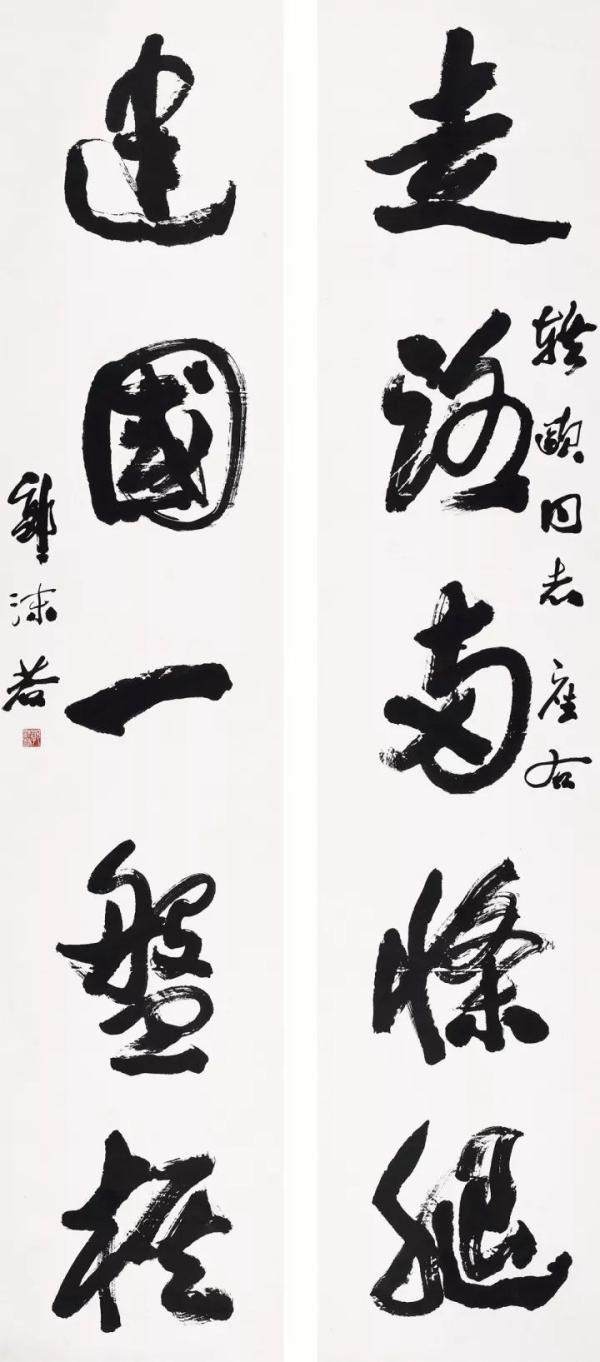 同志座右
走路兩條腿
建國一盤棋
郭沫若